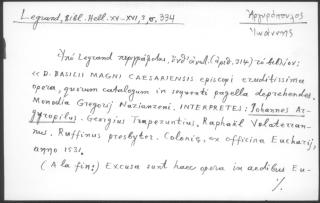 Legrand, Bibl. Hell. XV-XVI, 3, σ. 334
Ἀργυρόπουλος
Ἰωάννης
Ὑπὸ Legrand περιγράφεται, ἔνθ' ἀνωτ. (ἀριθ. 314) τὸ βιβλίον:
« D. BASILII MAGNI CAESARIENSIS episcopi eruditissima
opera, quorum catalogum in sequenti pagella deprehendes.
Monodia Gregorij Nazianzeni. INTERPRETES: Iohannes Ar-
gyropilus. Georgius Trapezuntius. Raphaël Volaterran-
nus. Ruffinus presbyter. Colonię, ex officina Eucharij,
anno 1531.
(A la fin:) Excusa sunt haec opera in aedibus Eu-
./.